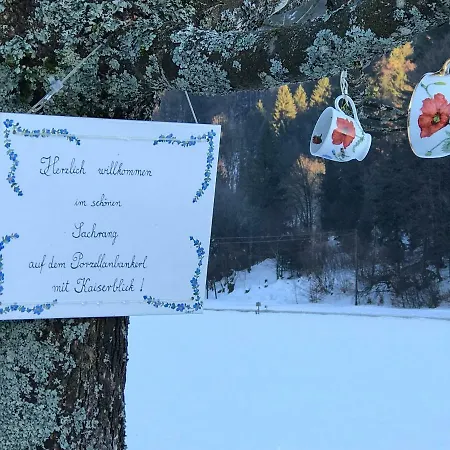 Herzlich willkommen
im schönen
Sachrang
auf dem Porzellanbankerl
mit Kaiserblick!